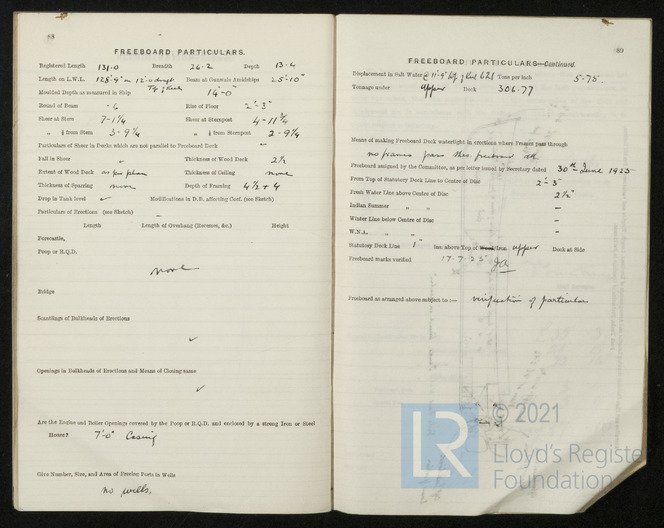 88
FREEBOARD PARTICULARS.
Registered Length 131.0 Breadth 26.2 Depth 13.4
Length on L.W.L. 128'.9" on 12'.0 draft Top of Keel Beam at Gunwale Amidships 25'.10"
Moulded Depth as measured in Ship 14'-0"
Round of Beam .6 Rise of Floor 2'-3"
Sheer at Stem 7-1 1/4 Sheer at Sternpost 4-11 3/4
" 1/8 from Stem 3-9 1/4 " 1/8 from Sternpost 2-9 1/4
Particulars of Sheer in Decks which are not parallel to Freeboard Deck –
Fall in Sheer " Thickness of Wood Deck 2 1/2
Extent of Wood Deck as per plan Thickness of Ceiling none
Thickness of Sparring none Depth of Framing 4 1/2 + 4
Drop in Tank level ✓ Modifications in D.B. affecting Coef. (see Sketch)
Particulars of Erections (see Sketch) –
Length Length of Overhang (Recesses, &c.) Height
Forecastle,
Poop or R.Q.D.
none
Bridge
Scantlings of Bulkheads of Erections
✓
Openings in Bulkheads of Erections and Means of Closing same
✓
Are the Engine and Boiler Openings covered by the Poop or R.Q.D. and enclosed by a strong Iron or Steel
House? 7'-0" Casing
Give Number, Size, and Area of Freeing Ports in Wells
no wells.
89
FREEBOARD PARTICULARS—Continued.
Displacement in Salt Water @ 11'-9" top of Keel 621 Tons per inch 5.75.
Tonnage under upper Deck 306.77
Means of making Freeboard Deck watertight in erections where Frames pass through
no frames pass thro freeboard dk
Freeboard assigned by the Committee, as per letter issued by Secretary dated 30th June 1925
From Top of Statutory Deck Line to Centre of Disc 2'-3"
Fresh Water Line above Centre of Disc 2 1/2"
Indian Summer " " –
Winter Line below Centre of Disc –
W.N.A. " " –
Statutory Deck Line 1" ins. above Top of Wood/Iron upper Deck at Side
Freeboard Marks verified 17-7-25
Freeboard as arranged above subject to :— verification of particulars
LR
© 2021
Lloyd's Register
Foundation